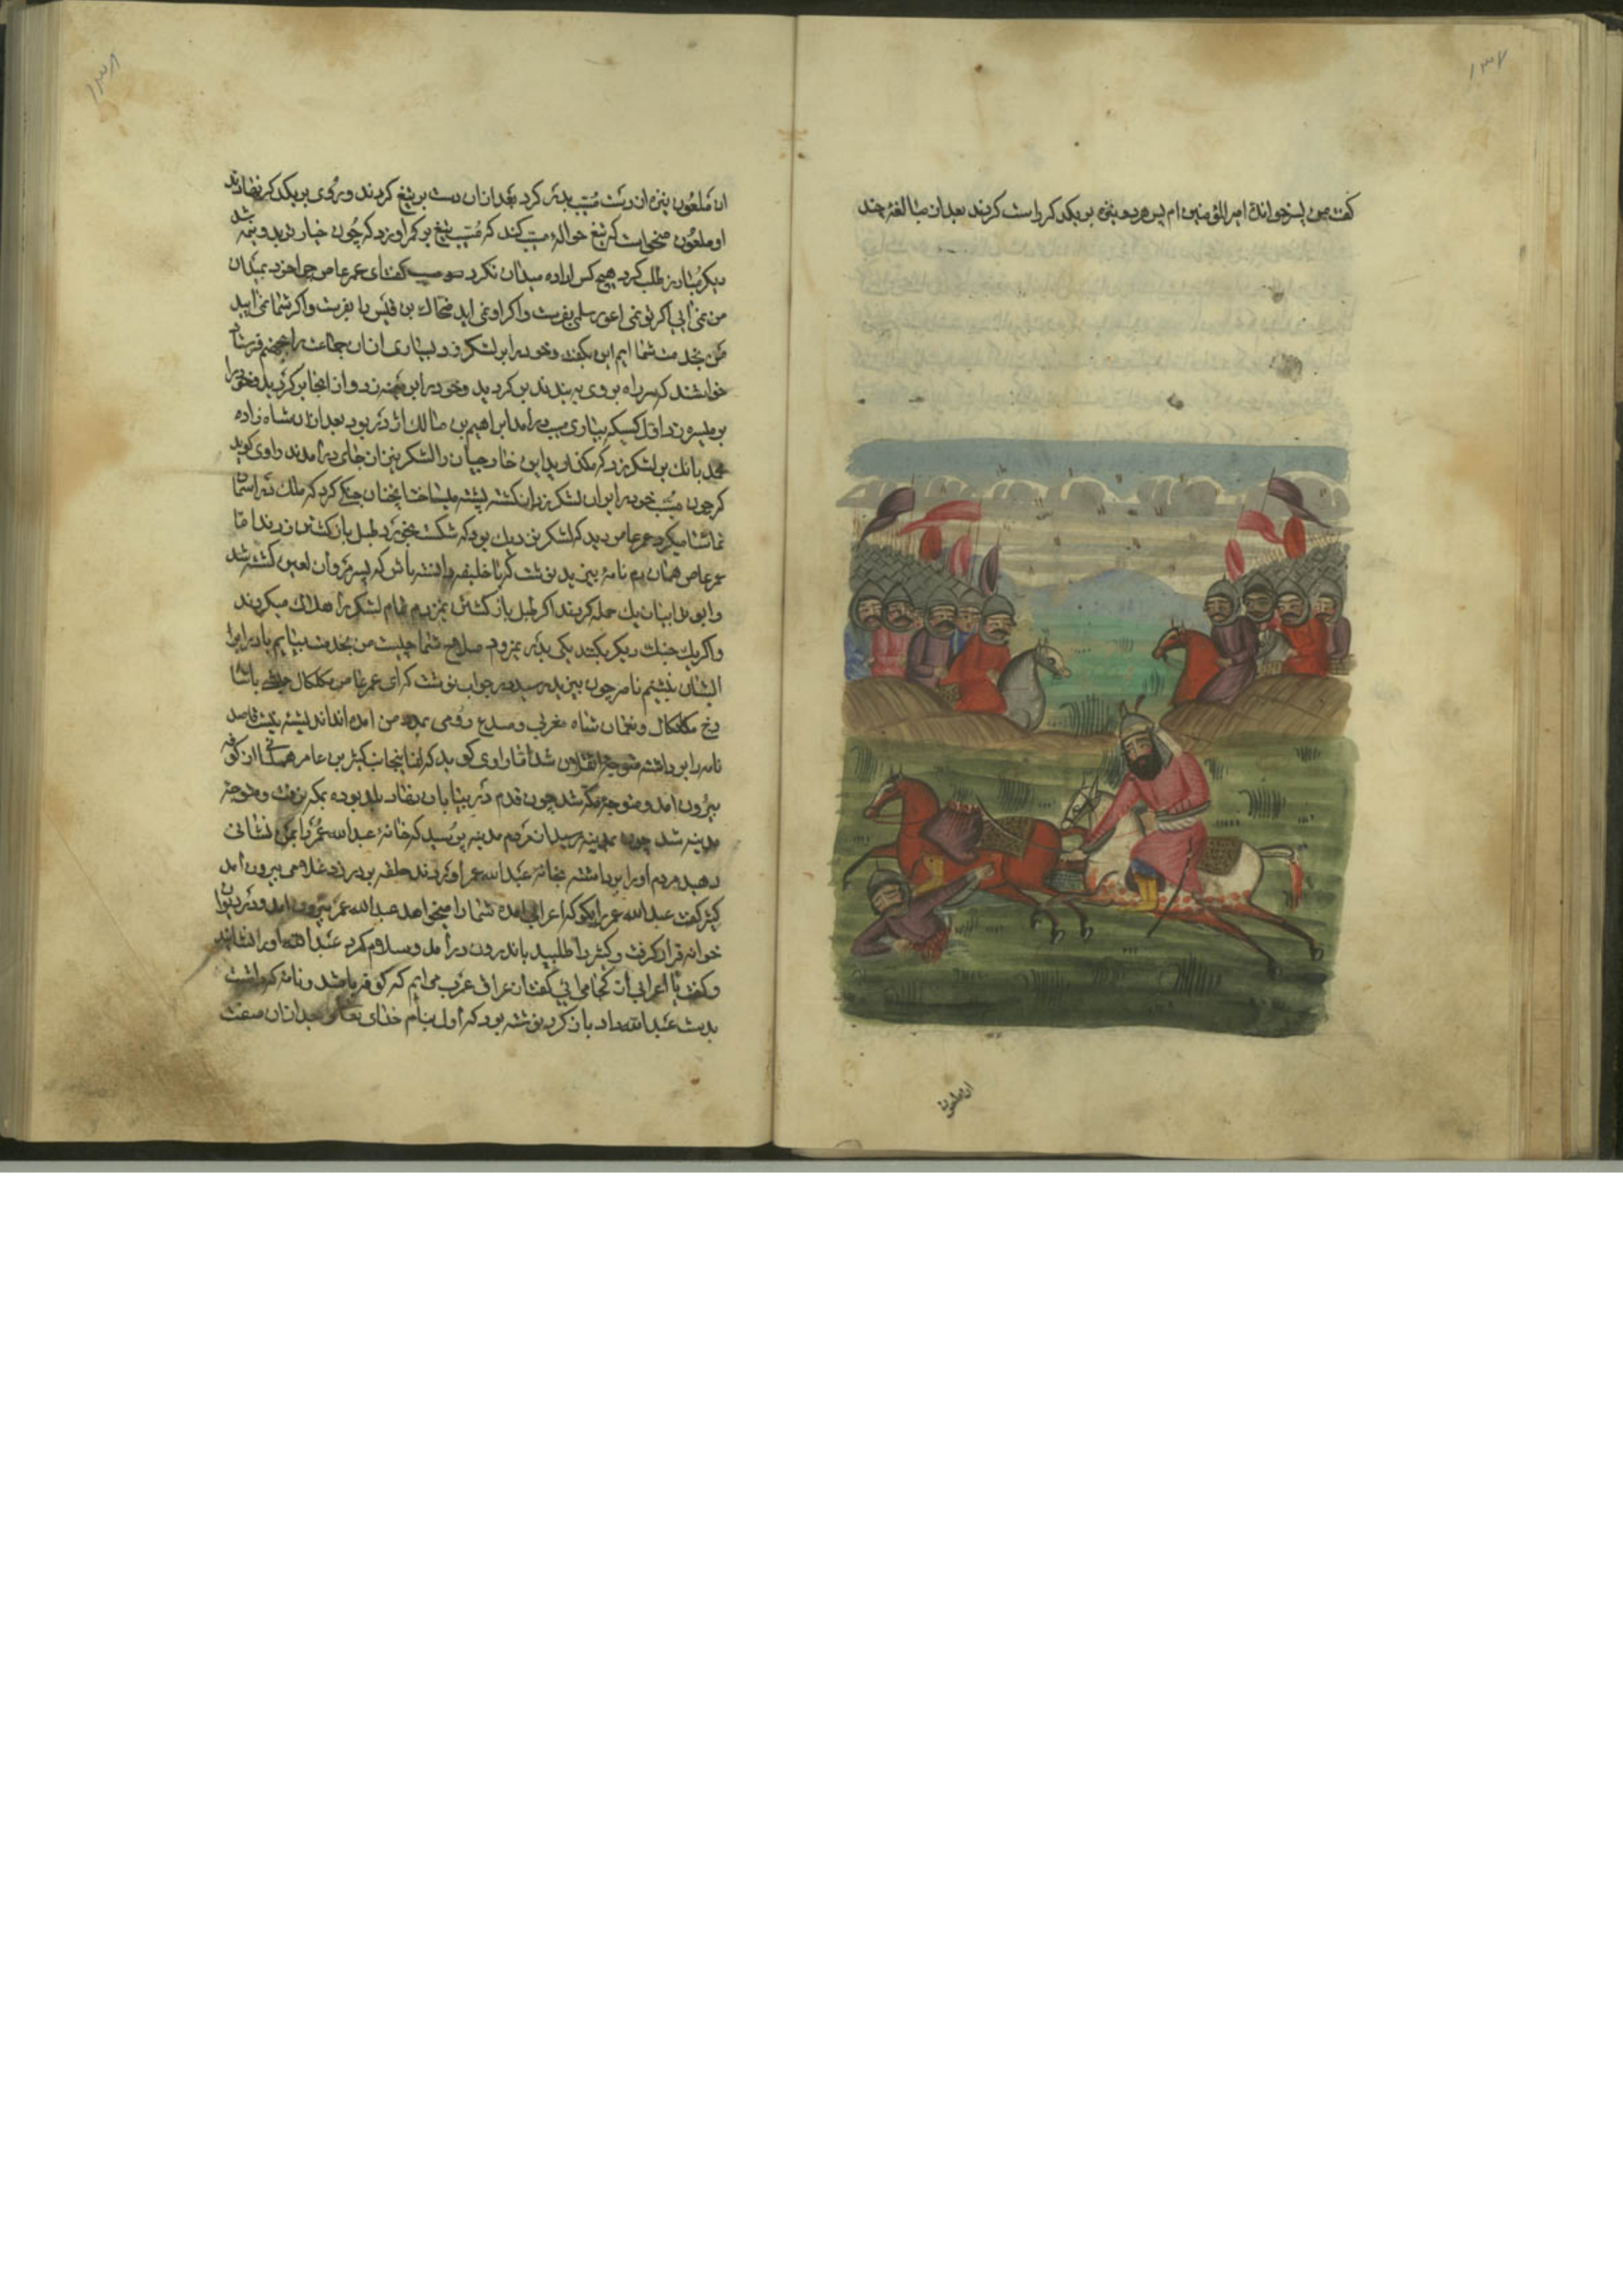 ۱۳۷
گفت من پسر خواندهٔ امیرالمؤمنین ام پس هر دو نیزه بر یکدیکر راست کردند بعد از مبالغهٔ چند
ان ملعون
۱۳۸
ان ملعون نیزه از دست مسیب بدر کرد بعد ازان دست بر تیغ کردند و روی بر یکدیکر نهادند
او ملعون میخواست که تیغ حوالهٔ مسیب کند که مسیب تیغ بر کمر او زد که چون خیار تر بدو نیمه شد
دیکر مبارز طلب کرد هیچ کس اراده میدان نکرد مسیب گفت ای عمر عاص چرا خود بمیدان
من نمی ائی اکر تو نمی ائی اعور سلمی بفرست و اکر او نمی اید ضحاک بن قیس را بفرست و اکر شما نمی ایید
من بخدمت شما ایم این بکفت و خود را بر لشکر زد بسیاری ازان جماعت را بجهنم فرستاد
خواستند که سر راه بر وی به بندند بر کردید و خود را بر میمنه زد و از انجا بر کردید و خود را
بر میسره زد اول کسیکه بیاری مسیب در امد ابراهیم بن مالک اژدر بود بعد ازان شاه زاده
محمد بانک بر لشکر زد که مکذارید این خارجیان را لشکر نیز از جای در امدند راوی کوید
که چون مسیب خود را بر ان لشکر زد از کشته پشته میساخت چنان جنکی کرد که ملک در اسمان
تماشا میکرد عمر عاص دید که لشکر نزدیک بود که شکست بخورد طبل باز کشتن زدند اما
عمر عاص همان دم نامه بیزید نوشت که یا خلیفه دانسته باش که پسر مروان لعین کشته شد
و ابو ترابیان یک حمله کردند اکر طبل باز کشتن نمیزدم تمام لشکر را هلاک میکردند
و اکر یک جنک دیکر بکنند یکی بدر نمیرود صلاح شما چیست من بخدمت بیایم یا در برابر
ایشان بنشینم نامه چون بیزید رسید در جواب نوشت که ای عمر عاص مکلکال باشا
زنج مکلکال و نعمان شاه مغربی و صدیع رومی بمدد من امده اند اندیشه نیست قاصد
نامه را برداشته متوجه شد اما راوی کوید که از اینجانب کثیر بن عامر همدانی از کوفه
بیرون امد و متوجه مکه شد چون قدم در بیابان نهاد بلد بوده بمکه نرفت و متوجه
مدینه شد چون بمدینه رسید از مردم مدینه پرسید که خانهٔ عبدالله عمر را بمن نشانی
دهید مردم او را برداشته بخانهٔ عبدالله عمر اوردند حلقه بر در زد غلامی بیرون امد
کثیر کفت عبدالله عمر را بکو که اعرابی امده شما را میخواهد عبدالله عمر بیرون امد و در دیوان
خوانه قرار کرفت و کثیر را طلبید باندرون در امد و سلام کرد عبدالله او را بنشاند
و کفت یا اعرابی از کجا می ائی کفت از عراق عرب می ایم که کوفه باشد و نامهٔ که داشت
بدست عبدالله داد باز کرد نوشته بود که اول بنام خدای تعالی و بعد ازان صفت